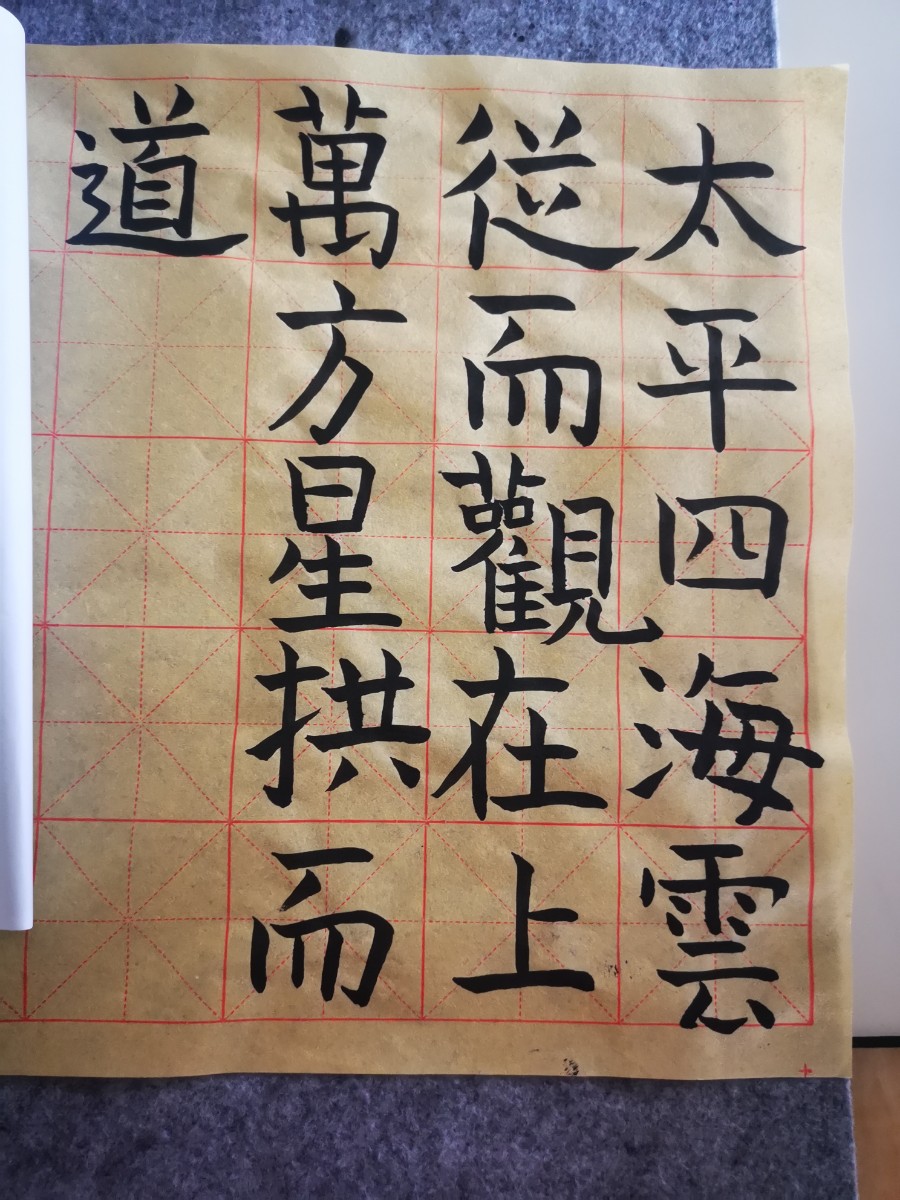 太平四海雲
從而觀在上
萬方星拱而
道